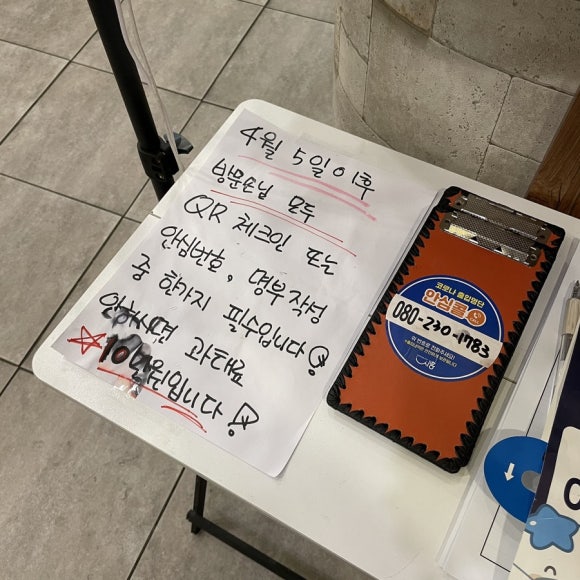 4월 5일이후
방문손님 모두
QR 체크인 또는
안심번호, 명부작성
중 한가지 필수입니다!
안하시면 과태료
☆10만원입니다!
코로나 출입명단
안심콜
080-230-1783
위 번호로 전화주세요!